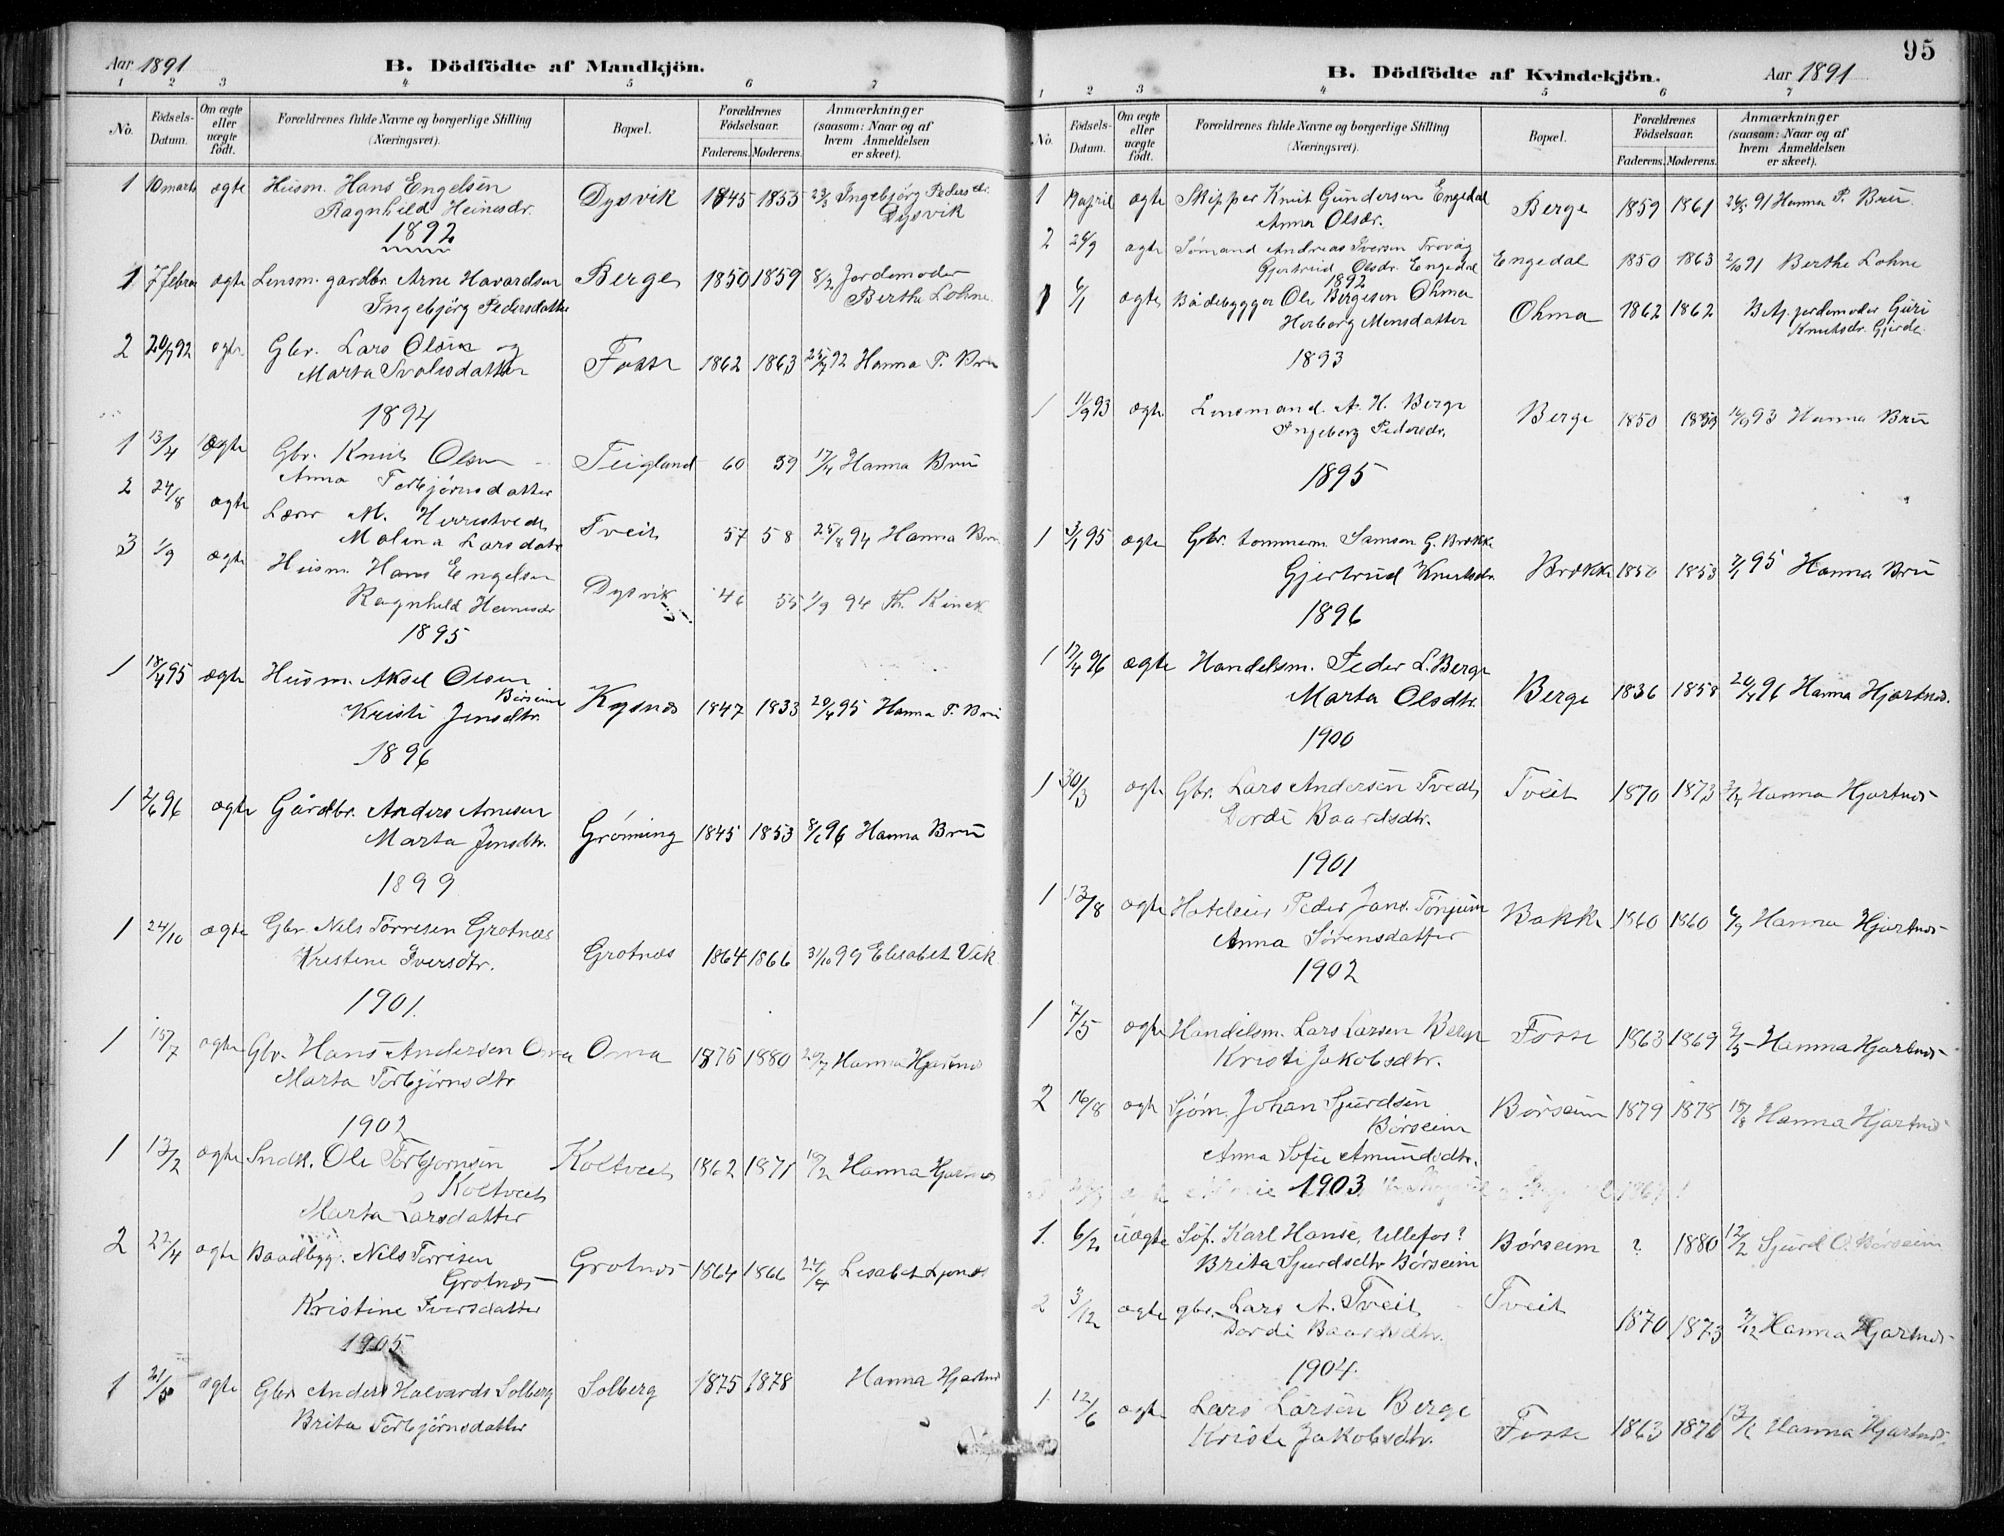 Aar 1891
B. Dödfödte af Mandkjön.
1 2 3 4 5 6 7
No. Födsels-Datum. Om ægte eller uægte födt. Forældrenes fulde Navne og borgerlige Stilling (Næringsvei). Bopæl. Forældrenes Födselsaar. Faderens. Moderens. Anmærkninger (saasom: Naar og af hvem Anmeldelsen er skeet).
1 10 marts ægte Husm. Hans Engelsen Dysvik 1845 1855 Ingebjörg Pedersdr.
Ragnhild Heinesdr. Dysvik
1892
1 7 febru ægte Lensm. gardbr. Arne Havardsen Berge 1850 1859 8/2 Jordemoder
Ingebjörg Pedersdatter Berthe Lohne
2 20/7 92 ægte Gbr. Lars Olsen og Fosse 1862 1863 25/7 92 Hanna P. Bru
Marta
1894
1 13/4 ægte Gbr. Knut Olsen Teigland 60 59 17/4 Hanna Bru
Anna Torbjørnsdatter
2 24/8 ægte Lærer M. Tveit 57 58 25/8 94 Hanna Bru
Malina Larsdatr
3 1/9 ægte Husm. Hans Engelsen Dysvik 46 55 1/9 94
Ragnhild Heinesdr
1895
1 18/4 95 ægte Husm. Aksel Olsen Kysnæs 1847 1853 20/4 95 Hanna P. Bru
Börseim
Kristi Jensdtr.
1896
1 2/6 96 ægte Gårdbr. Anders Arnesen Grönning 1845 1853 8/6 96 Hanna Bru
Marta Jensdtr.
1899
1 24/10 ægte Gbr. Nils Torresen Grotnæs Grotnæs 1864 1866 31/10 99 Elisabet Vik
Kristine Iversdtr.
1901.
1 15/7 ægte Gbr. Hans Andersen Oma Oma 1875 1880 Hanna Hjartnes
Marta Torbjørnsdtr
1902
1 12/2 ægte Ole Torbjornsen Koltveit 1862 1871 Hanna Hjartnes
Koltveit
Marta Larsdatter
2 22/4 ægte Baadbygg. Nils Torrisen Grotnæs 1864 1866 Lisabet
Grotnæs
Kristine Iversdatter
1905
1 ægte Gbr Anders Halvards Solberg Solberg 1875 1878 Hanna Hjartnes
Brita Torbjørnsdatter
95
B. Dödfödte af Kvindekjön.
Aar 1891
1 2 3 4 5 6 7
No. Födsels-Datum. Om ægte eller uægte födt. Forældrenes fulde Navne og borgerlige Stilling (Næringsvei). Bopæl. Forældrenes Födselsaar. Faderens. Moderens. Anmærkninger (saasom: Naar og af hvem Anmeldelsen er skeet).
1 april ægte Skipper Knut Gundersen Engedal Berge 1859 1861 91 Hanna P. Bru.
Anna Olsdr.
2 ægte Sømand Andreas Iversen Engedal 1850 1863 91 Berthe Lohne
Gjertrud Olsdr. Engedal
1892
1 6/1 ægte Bådebygger Ole Bergesen Ohma Ohma 1862 1862 jordemoder Guri
Herborg Monsdatter Knutsdr. Gjerde
1893
1 11/9 93 ægte Lensmand. A. H. Berge Berge 1850 1859 93 Hanna Bru
Ingeborg Pedersdr.
1895
1 3/1 95 ægte Gbr. tømmerm. Samson G. Brække Brække 1850 1853 7/1 95 Hanna Bru
Gjertrud Knutsdr
1896
1 17/4 96 ægte Handelsm. Peder L. Berge Berge 1836 1858 20/4 96 Hanna Hjartnes.
Marta Olsdtr.
1900
1 30/3 ægte Gbr. Lars Andersen Tvedt Tveit 1870 1873 Hanna Hjartnes
Dordi Baardsdtr.
1901
1 13/8 ægte Hoteleier Peder Jans. Tönjum Bakke 1860 1860 Hanna Hjartnes
Anna Sörensdatter
1902
1 7/5 ægte Handelsm. Lars Larsen Berge Fosse 1863 1869 9/5 Hanna Hjartnes
Kristi Jakobsdtr.
2 16/8 ægte Sjöm. Johan Sjurdsen Börseim 1879 1878 18/8 Hanna Hjartnes
Börseim
Anna Sofie Amundsdtr.
1903
1. 6/2. uægte Söf. Karl Hanse, Ullefos? Börseim ? 1880 12/2 Sjurd O. Börseim
Brita Sjurdsdtr Börseim
2 3/12 ægte gbr. Lars A. Tveit Tveit 1870 1873 Hanna Hjartnes
Dordi Baardsdtr.
1904.
1. 12/6 ægte Lars Larsen Berge Fosse 1863 1870 13/6 Hanna Hjartnes
Kristi Jakobsdtr.